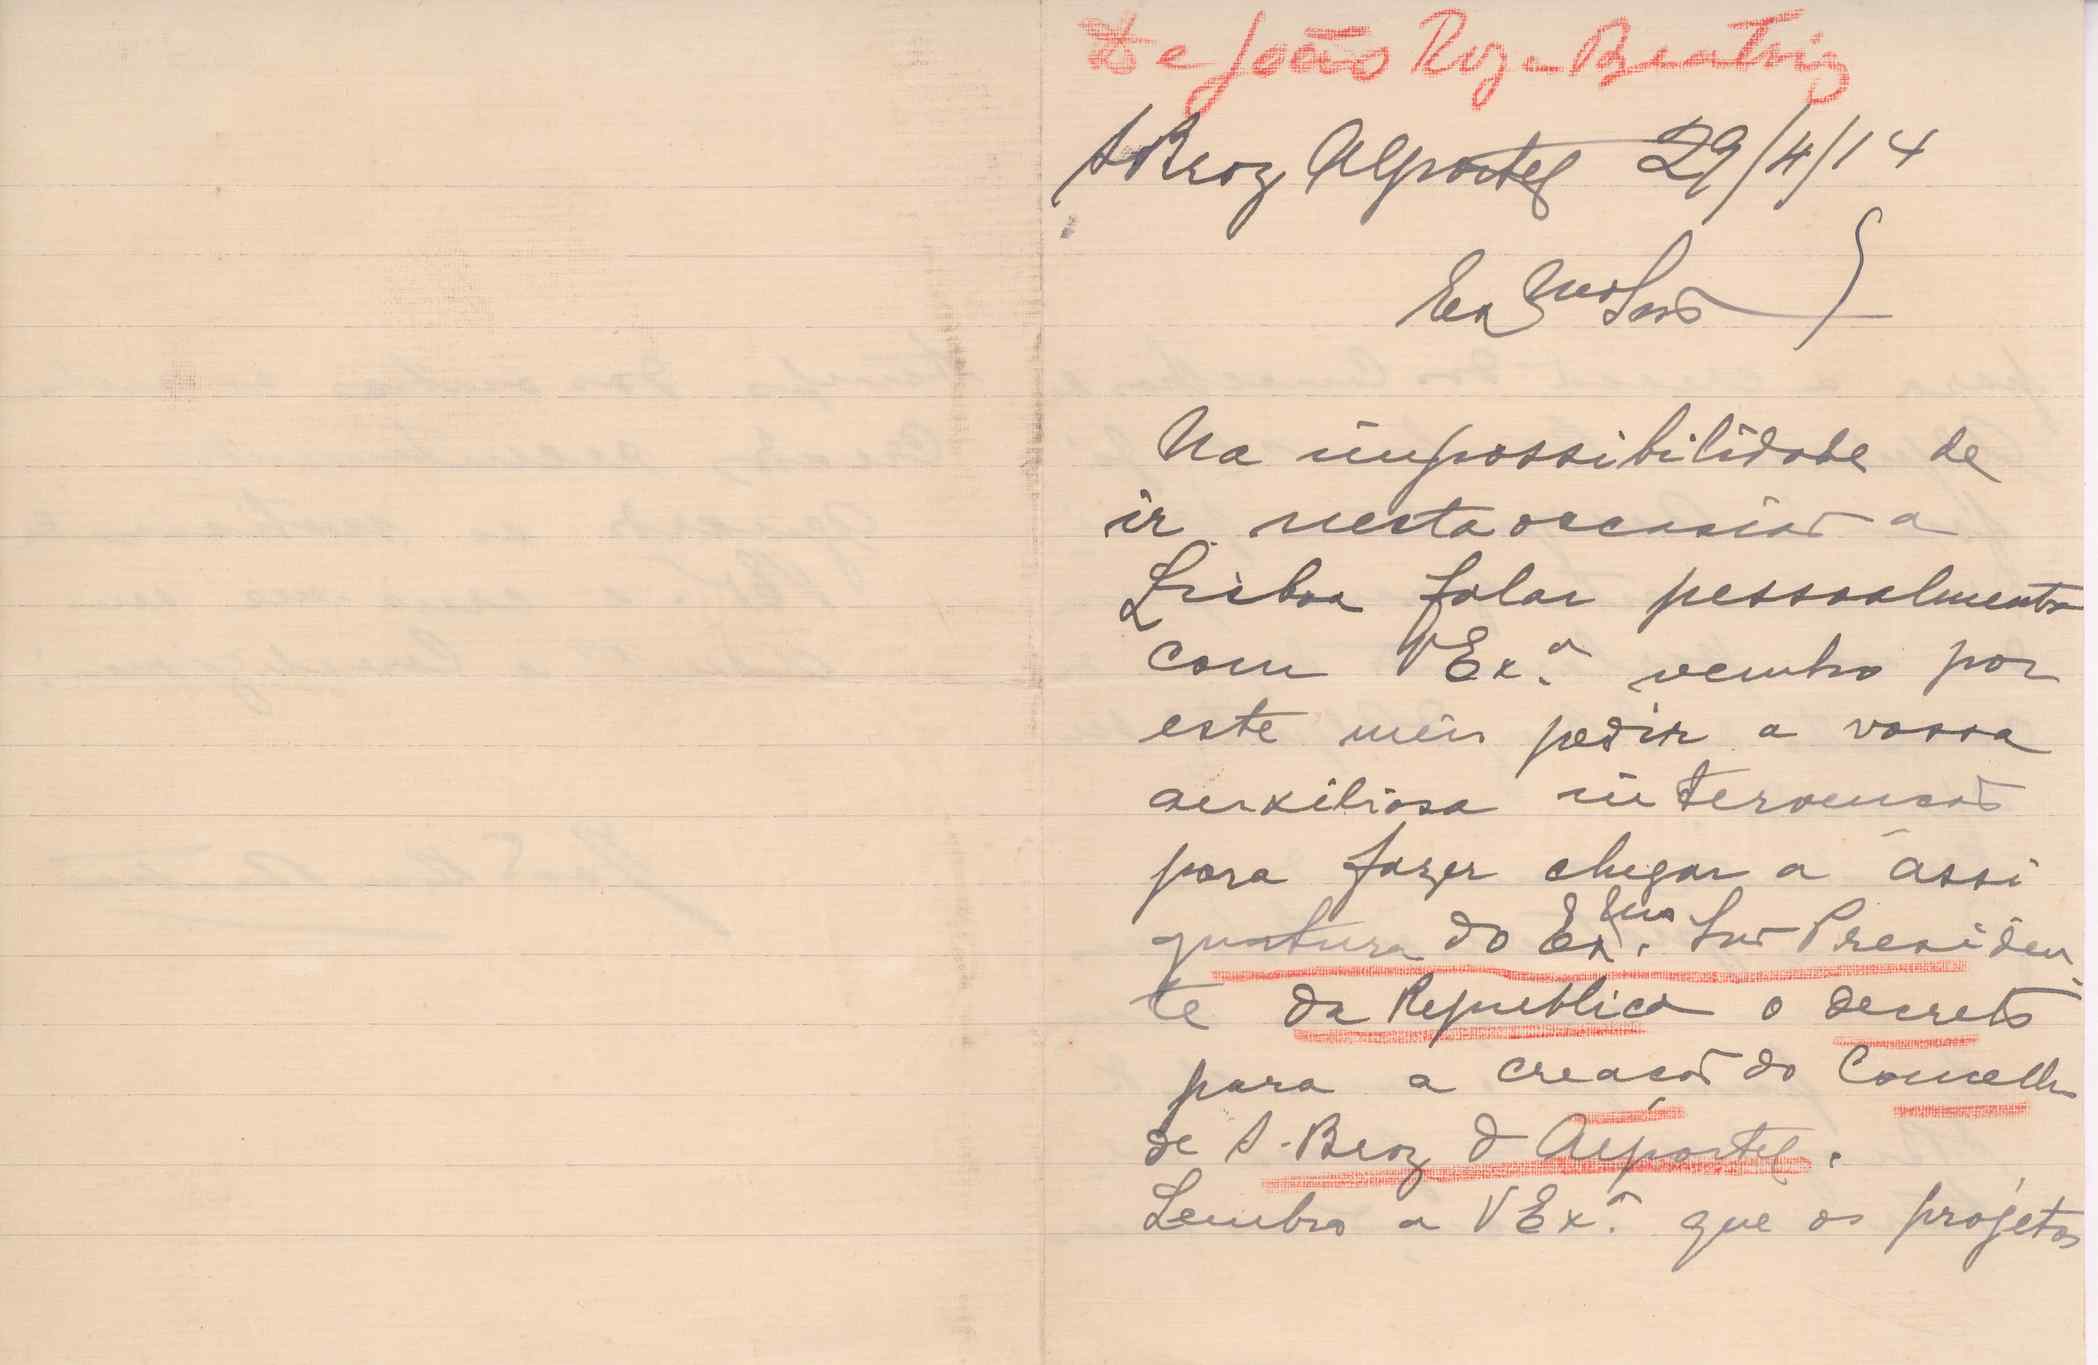 De João Roz Beatriz
S Braz Alportel 29/4/14
Exmo Snr
Na impossibilidade de
ir nesta occasião a
Lisboa falar pessoalmente
com VExª. venho por
este meio pedir a vossa
auxiliosa intervenção
para fazer chegar a assi
gnatura do Exmo. Snr Presiden-
te da Republica o decreto
para a creação do Concelho
de S. Braz d Alportel.
Lembro a VExª. que os projetos